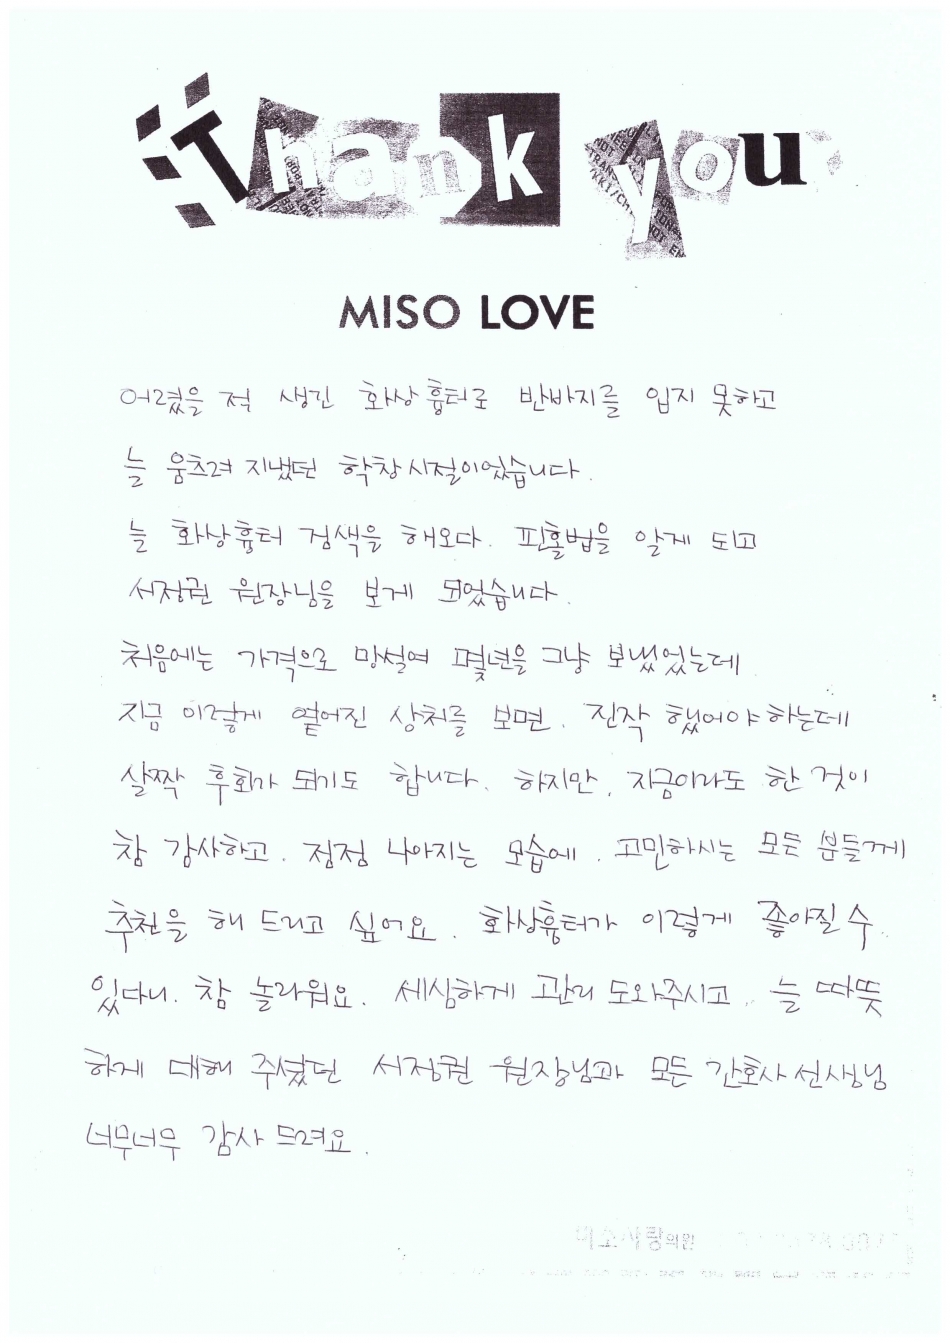 Thank you
MISO LOVE
어렸을 적 생긴 화상흉터로 반바지를 입지 못하고
늘 움츠려 지냈던 학창시절이었습니다.
늘 화상흉터 검색을 해오다. 핀홀법을 알게 되고
서정권 원장님을 보게 되었습니다.
처음에는 가격으로 망설여 몇년을 그냥 보냈었는데
지금 이렇게 옅어진 상처를 보면. 진작 했어야 하는데
살짝 후회가 되기도 합니다. 하지만, 지금이라도 한 것이
참 감사하고. 점점 나아지는 모습에. 고민하시는 모든 분들께
추천을 해 드리고 싶어요. 화상흉터가 이렇게 좋아질 수
있다니. 참 놀라워요. 세심하게 관리 도와주시고. 늘 따뜻
하게 대해 주셨던 서정권 원장님과 모든 간호사 선생님
너무너무 감사 드려요.
미소사랑의원